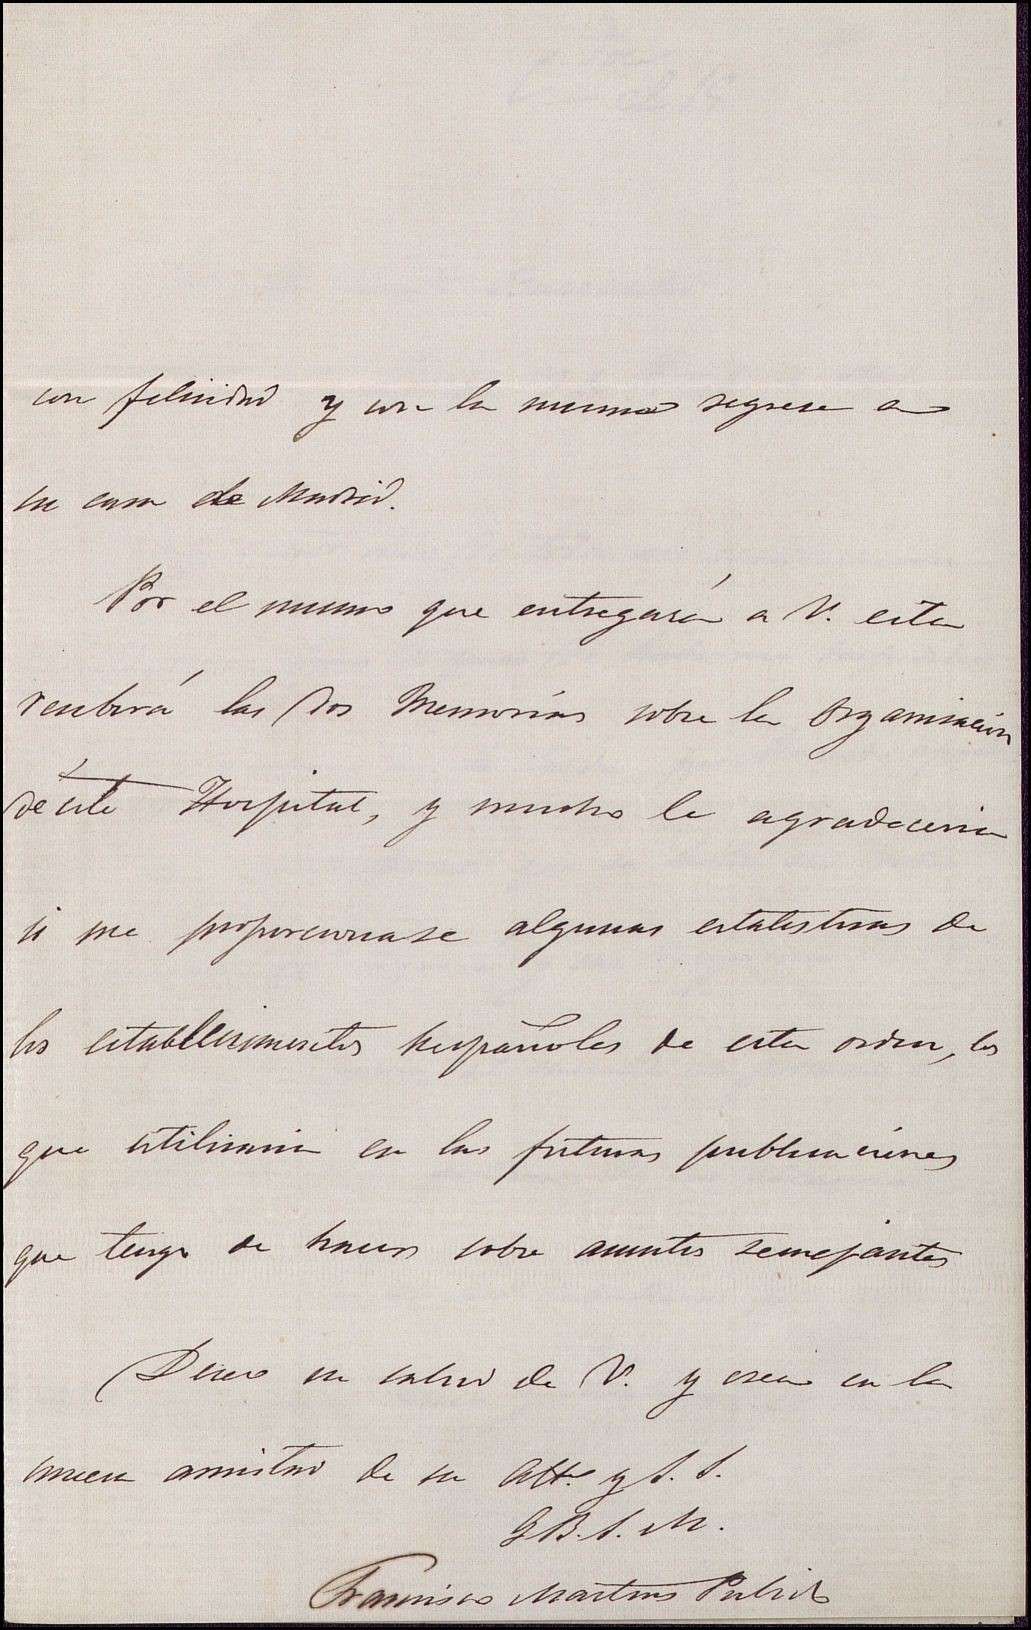 con felicidad y con la misma regrese a
su casa de Madrid.
Por el mismo que entregará a V. esta
recibirá las dos Memorias sobre la Organisación
de este Hospital, y mucho le agradeceria
si me proporcionase algunas estatisticas de
los establecimientos hespañoles de esta orden, las
que utilisaria en las futuras publicaciones
que tengo de hacer sobre asuntos semejantes
Deseo su salud de V. y crea en la
sincera amistad de su att.º y S. S.
Q B. S. M.
Francisco Martins Pulido